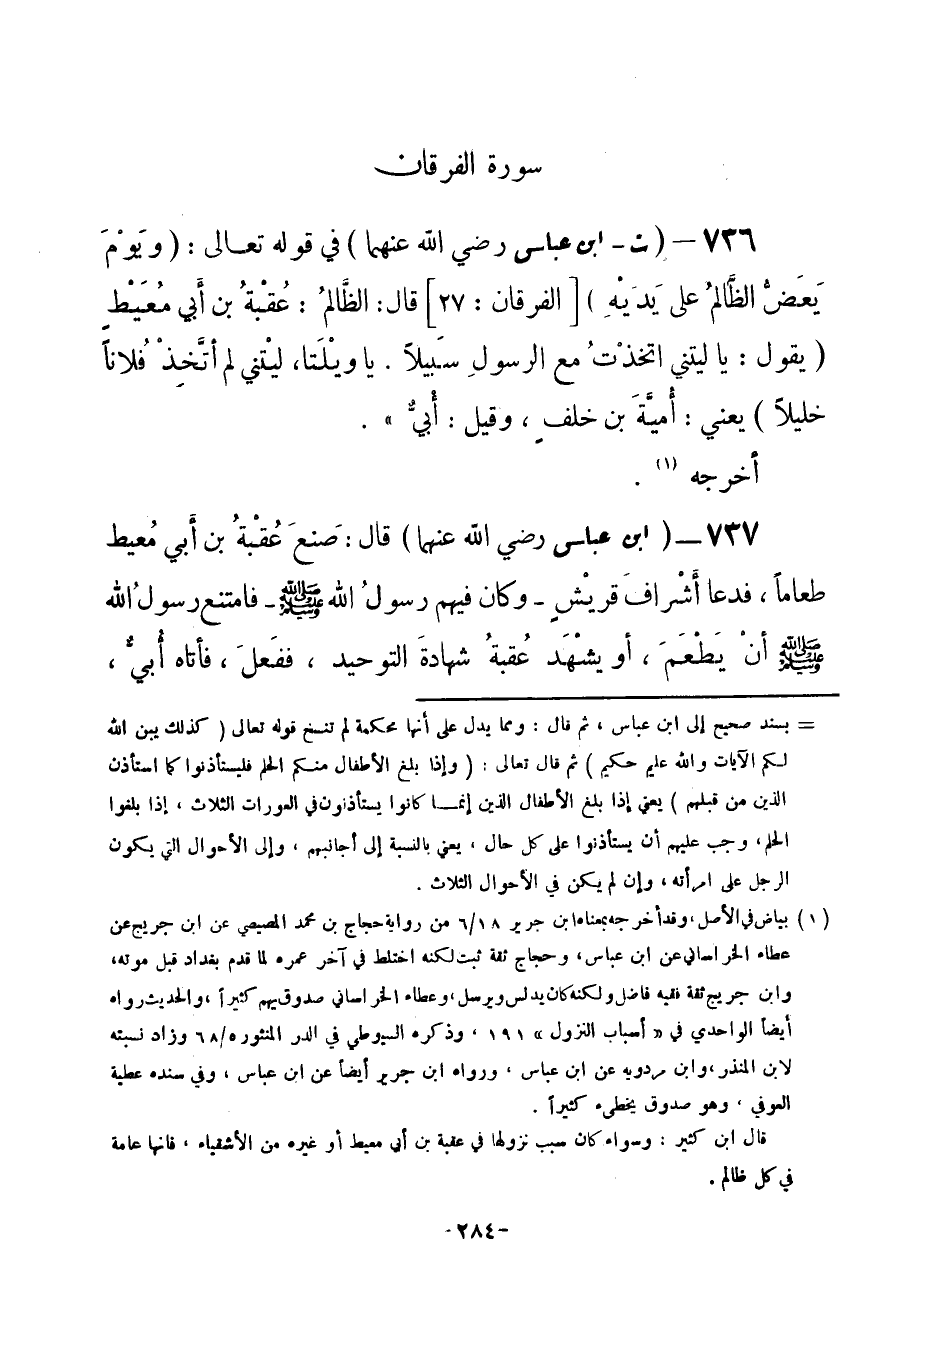 سورة الفرقان
٧٣٦ – ( ث - ابن عباس رضي الله عنهما ) في قوله تعالى : ( ويَوْمَ
يَعَضُّ الظَّالمُ على يَدَيْهِ ) [ الفرقان : ٢٧ ] قال: الظَّالمُ : عُقْبَةُ بن أَبي مُعَيْطٍ
( يقول : يا ليتني اتخذتُ مع الرسولِ سَبيلاً . يا ويْلَتا، ليْتني لم أتَّخِذْ فُلاناً
خليلاً ) يعني : أُميَّةَ بن خلفٍ ، وقيل : أُبيٌّ » .
أخرجه (١) .
٧٣٧ – ( ابن عباس رضي الله عنهما ) قال : صَنعَ عُقْبةُ بن أَبي مُعيط
طعاماً ، فدعا أَشْرافَ قريْشٍ - وكان فيهم رسولُ الله ﷺ - فامتنع رسولُ الله
ﷺ أنْ يَطْعَمَ ، أو يشْهَدَ عُقبةُ شهادةَ التوحيد ، ففَعلَ ، فأتاه أُبيٌّ ،
= بسند صحيح إلى ابن عباس ، ثم قال : ومما يدل على أنها محكمة لم تنسخ قوله تعالى ( كذلك يبن الله
لكم الآيات والله عليم حكيم ) ثم قال تعالى : ( وإذا بلغ الأطفال منكم الحلم فليستأذنوا كما استأذن
الذين من قبلهم ) يعني إذا بلغ الأطفال الذين إنما كانوا يستأذنون في العورات الثلاث ، إذا بلغوا
الحلم ، وجب عليهم أن يستأذنوا على كل حال ، يعني بالنسبة إلى أجانبهم ، وإلى الأحوال التي يكون
الرجل على امرأته ، وإن لم يكن في الأحوال الثلاث .
(١) بياض في الأصل ، وقد أخرجه بمعناه ابن جرير ٦/١٨ من رواية حجاج بن محمد المصيصي عن ابن جريج عن
عطاء الخراساني عن ابن عباس، وحجاج ثقة ثبت لكنه اختلط في آخر عمره لما قدم بغداد قبل موته،
وابن جريج ثقة فقيه فاضل ولكنه كان يدلس ويرسل، وعطاء الخراساني صدوق يهم كثيراً ، والحديث رواه
أيضاً الواحدي في « أسباب النزول » ١٩١ ، وذكره السيوطي في الدر المنثور ٦٨/٥ وزاد نسبته
لابن المنذر ، وابن مردويه عن ابن عباس ، ورواه ابن جرير أيضاً عن ابن عباس ، وفي سنده عطية
العوفي ، وهو صدوق يخطىء كثيراً .
قال ابن كثير : وسواء كان سبب نزولها في عقبة بن أبي معيط أو غيره من الأشقياء ، فانها عامة
في كل ظالم .
-٢٨٤-